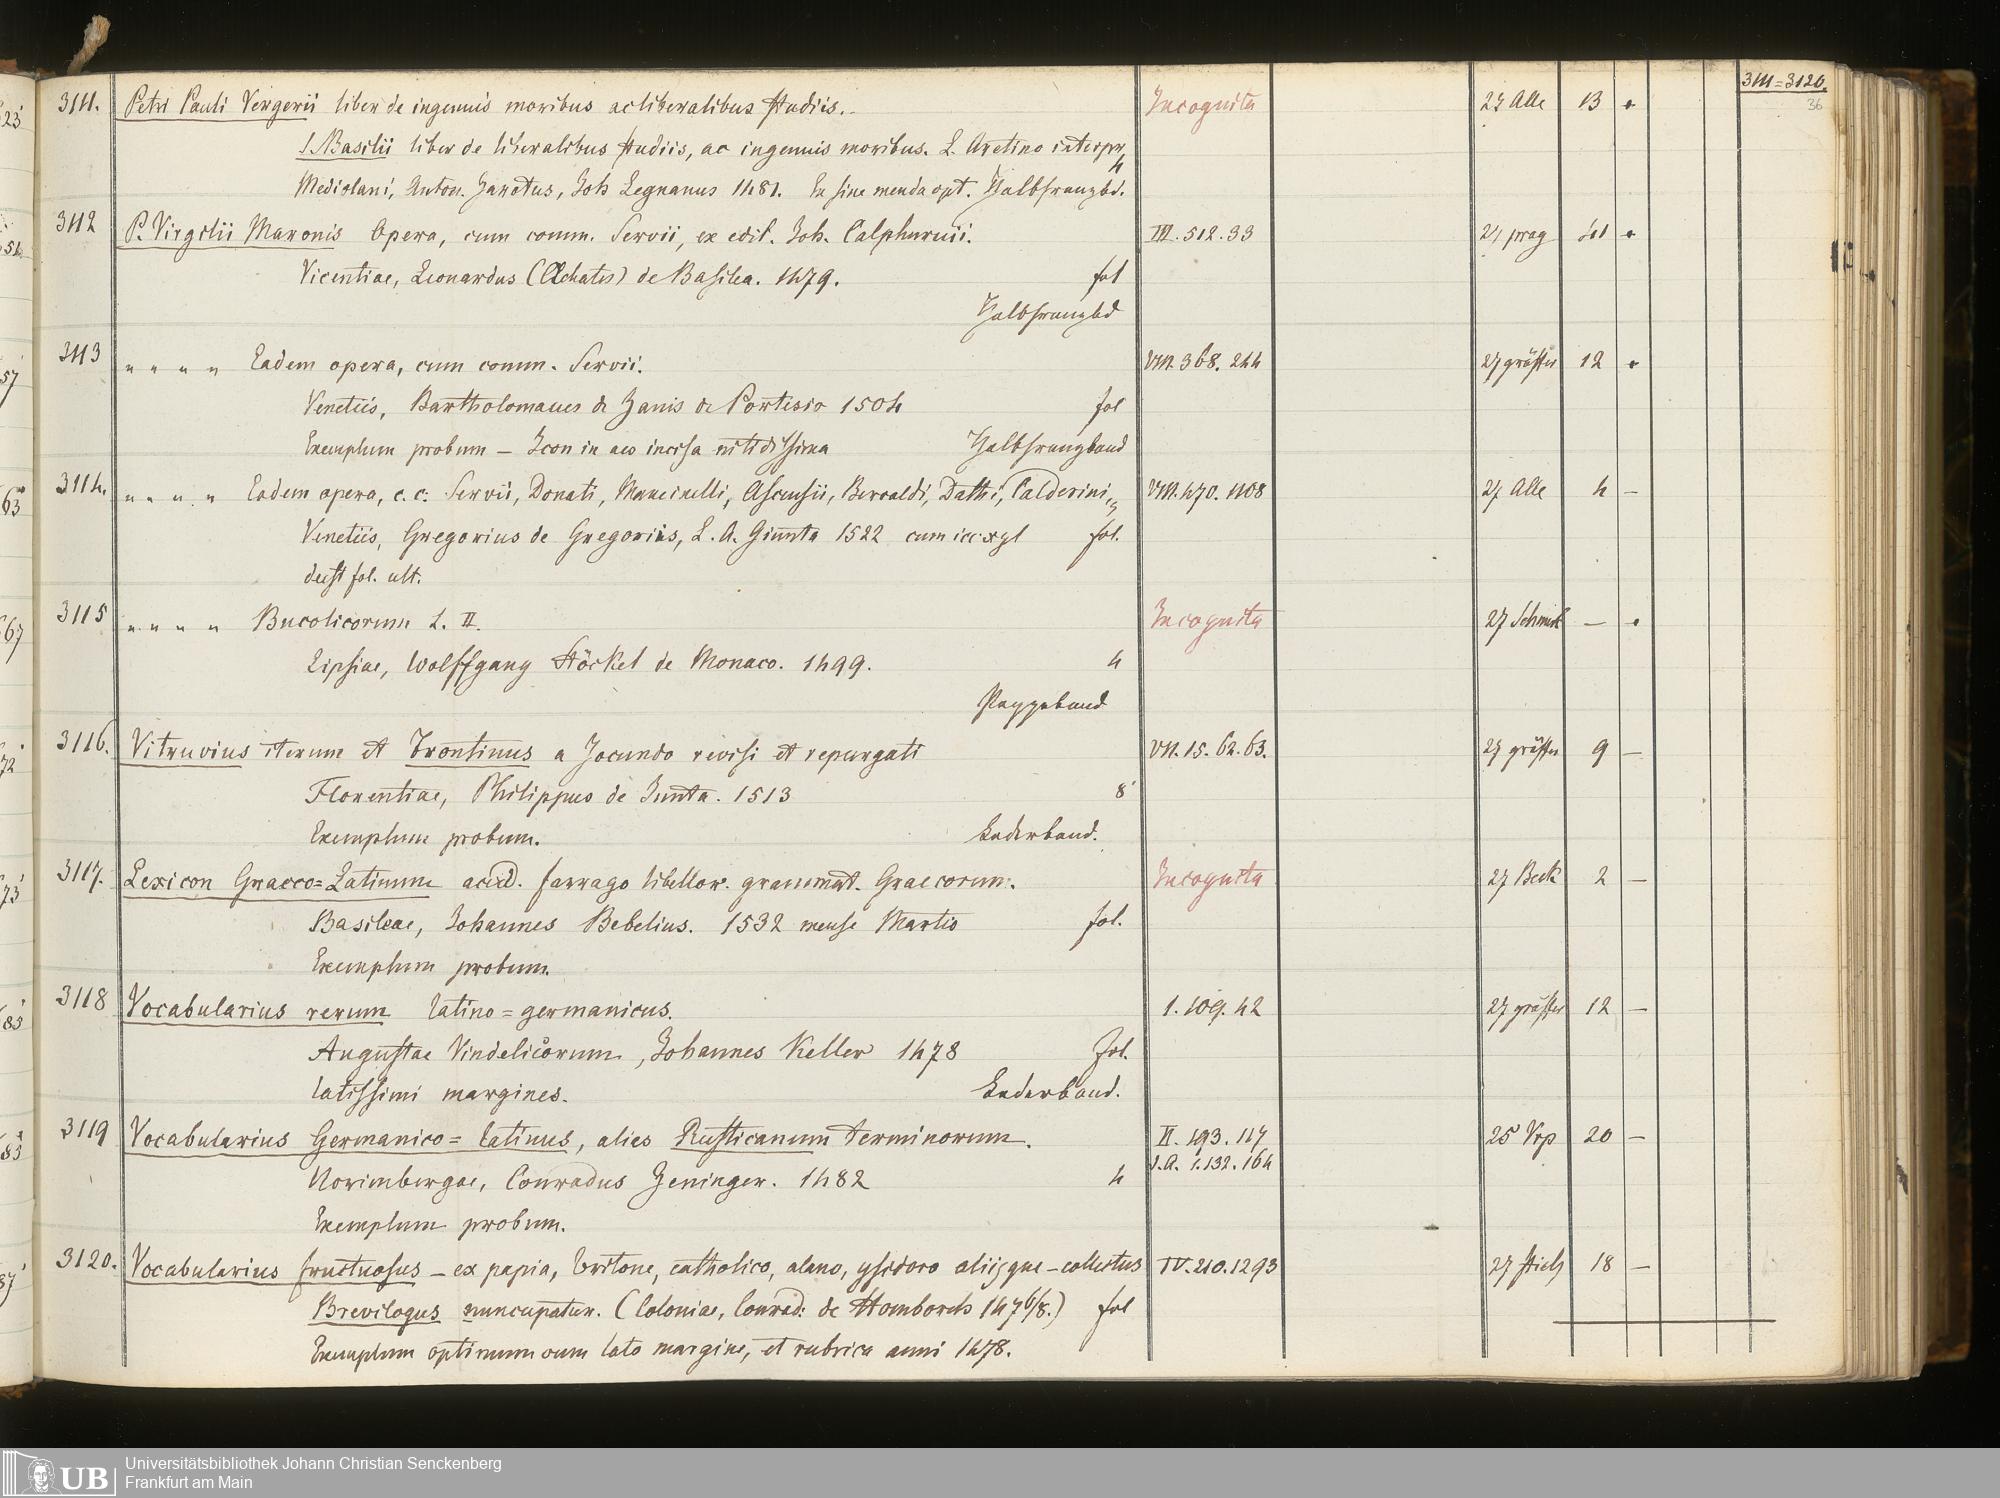 3111=3120.
36
3111. Petri Pauli Vergerii liber de ingenuis moribus ac liberalibus studiis. Incognita 27 Alle 13
S. Basilii liber de liberalibus studiis, ac ingenuis moribus. L. Aretino interpr. 4
Mediolani, Anton. Zarotus, Joh Legnanus 1481. Ex sine menda opt. Halbfranzbd.
3112 P. Virgilii Maronis Opera, cum comm. Servii, ex edit. Joh. Calphurnii. III. 512. 33 27 prag
Vicentiae, Leonardus (Achates) de Basilea. 1479. fol
Halbfranzbd
3113 " " " " Eadem opera, cum comm. Servii. VIII. 368. 244 27 gräffer 12
Venetiis, Bartholomaeus de Zanis de Portesio 1504 fol
Exemplum probum — Icon in aes incisa nitidissima Halbfranzband
3114. " " " " Eadem opera, c. c: Servii, Donati, Mancinelli, Ascensii, Beroaldi, Dathi, Calderini VIII. 470. 1108 27 Alle 4 —
Venetiis, Gregorius de Gregoriis, L. A. Giunta 1522 cum icc: xyl fol.
deest fol. ult.
3115 " " " " Bucolicorum L. II. Incognita 27 Schmidt —
Lipsiae, Wolffgang Stöckel de Monaco. 1499. 4
Pappeband
3116. Vitruvius iterum et Frontinus a Jocundo revisi et repurgati VII. 15. 62. 63. 27 gräffer 9 —
Florentiae, Philippus de Junta. 1513 8
Exemplum probum. Lederband.
3117. Lexicon Graeco=Latinum acced. farrago libellor. grammat. Graecorum. Incognita 27 Beck 2 —
Basileae, Johannes Bebelius. 1532 mense Martio fol.
Exemplum probum.
3118 Vocabularius rerum latino=germanicus. I. 109. 42 27 gräffer 12 —
Augustae Vindelicorum, Johannes Keller 1478 fol.
latissimi margines. Lederband.
3119 Vocabularius Germanico=latinus, alias Rusticanum terminorum. II. 193. 117 25 Vrp 20 —
S.A. I. 132. 164
Norimbergae, Conradus Zeninger. 1482 4
Exemplum probum.
3120. Vocabularius fructuosus — ex papia, britone, catholico, alano, ysidoro aliisque — collectus IV. 210. 1293 27 18 —
Brevilogus nuncupatur. (Coloniae, Conrad: de Homborch 1476/8.) fol
Exemplum optimum cum lato margine, et rubrica anni 1478.
UB Universitätsbibliothek Johann Christian Senckenberg
Frankfurt am Main